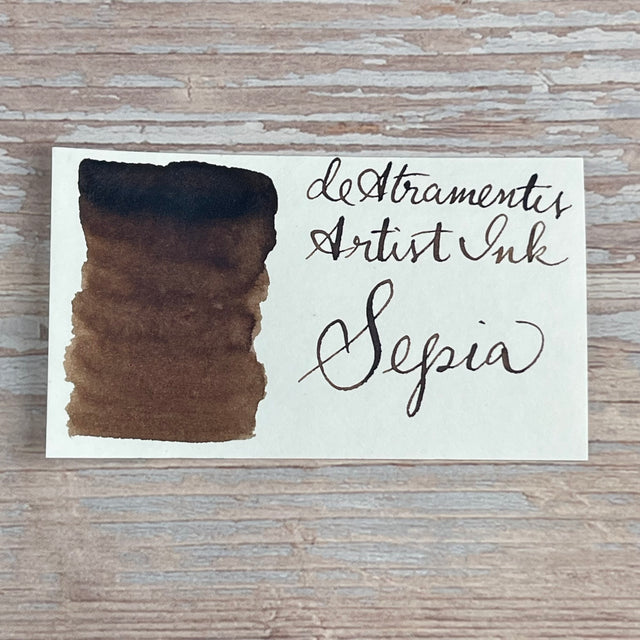 deAtramentis
Artist Ink
Sepia